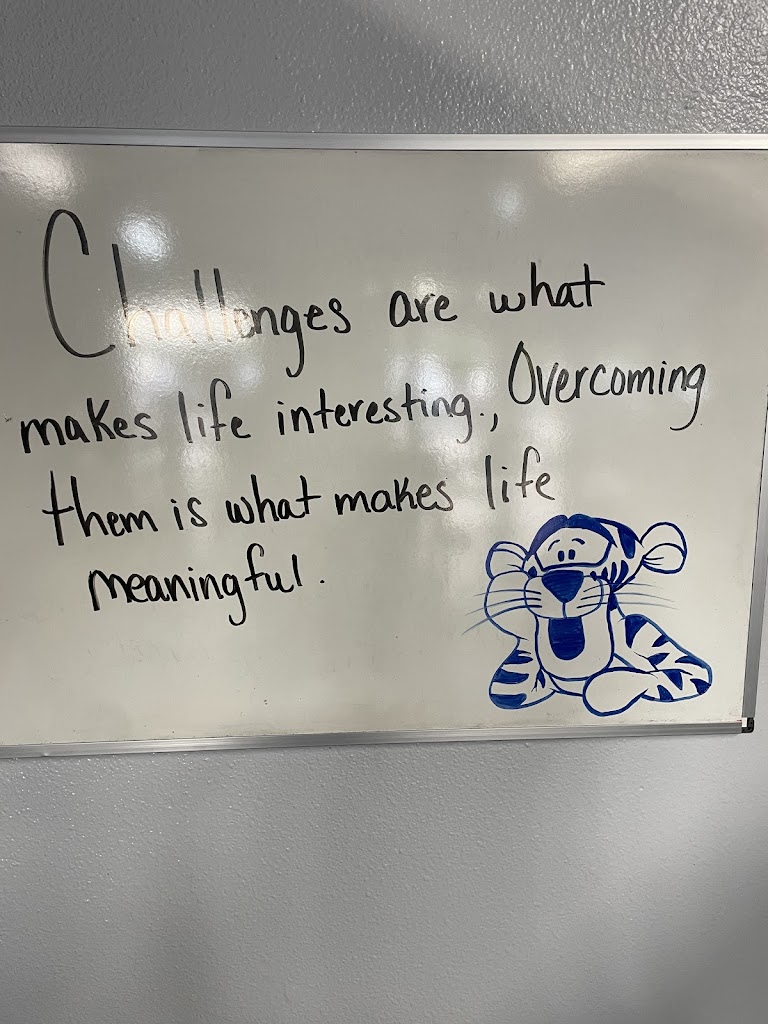 Challenges are what
makes life interesting., Overcoming
them is what makes life
meaningful.